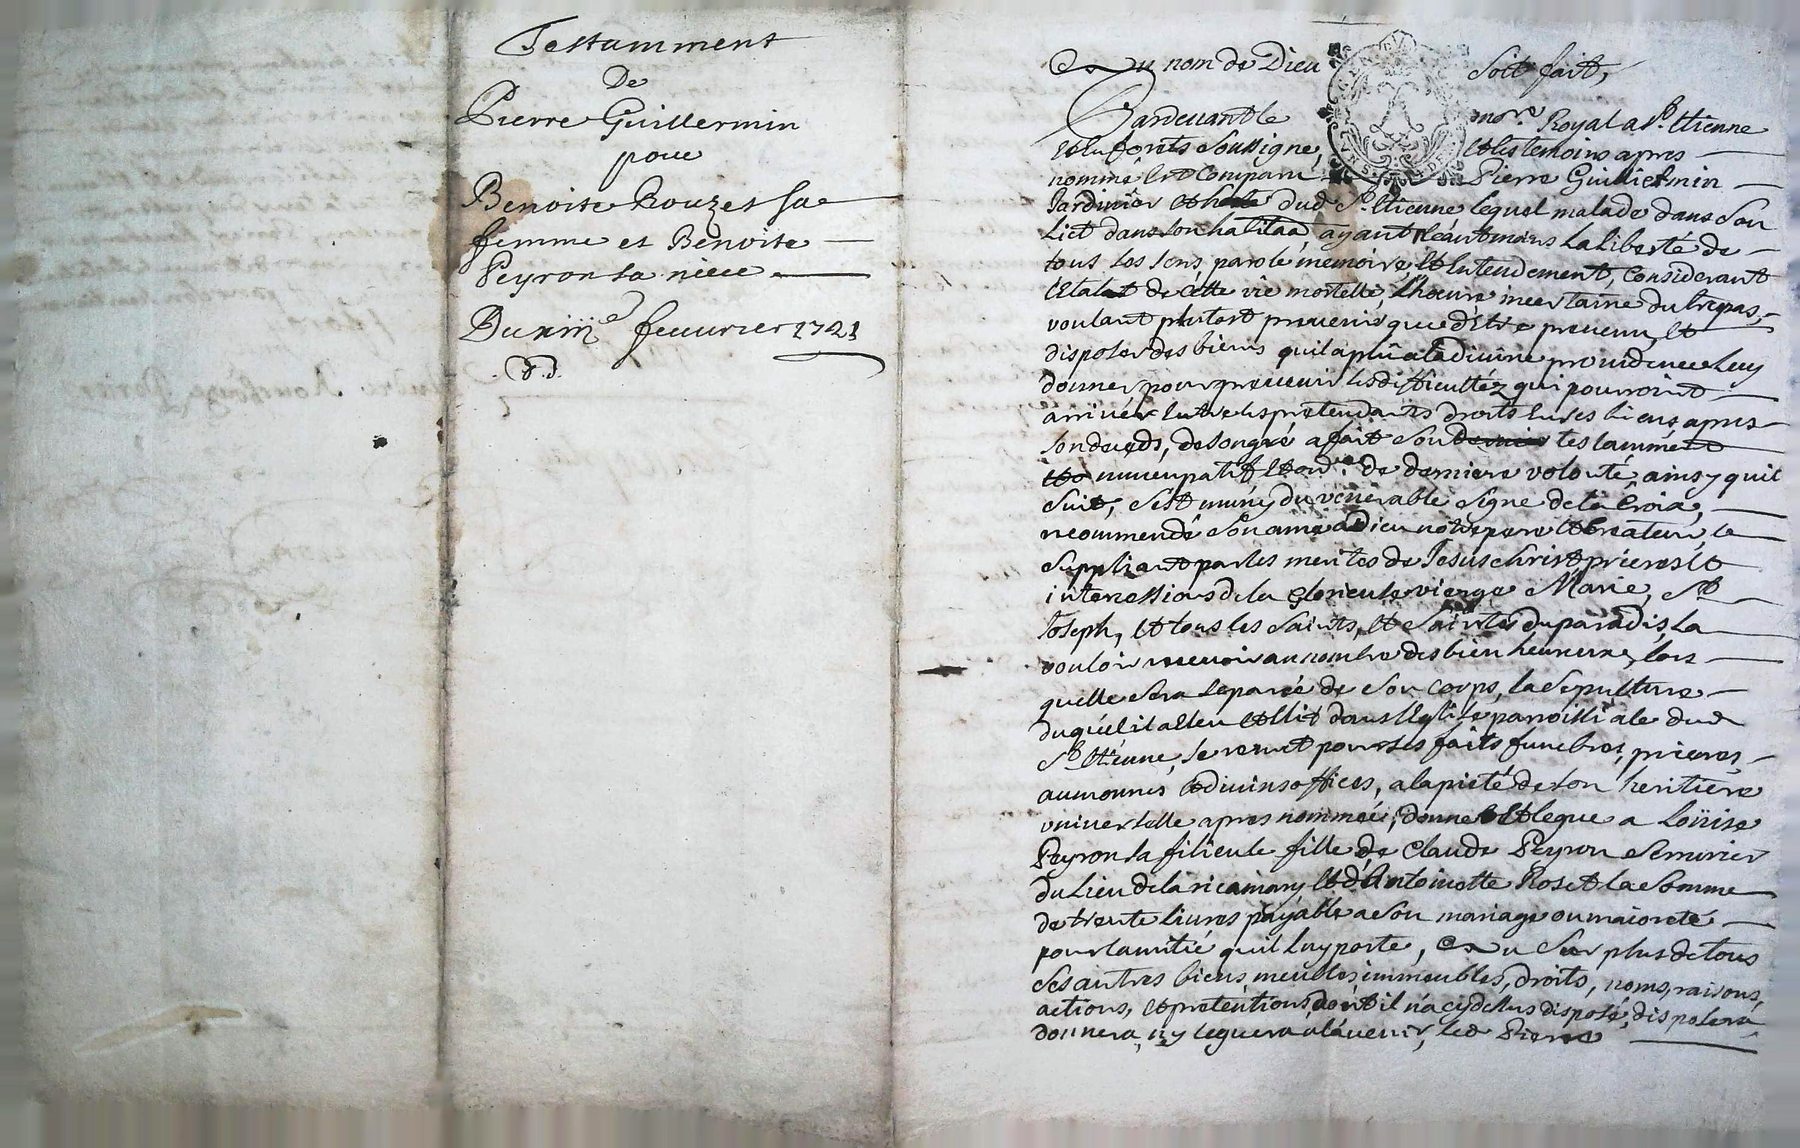 Testamment
De
Pierre Guillermin
pour
Benoite Rouzet sa
femme et Benoite
Peyron sa niece
Du xiii.e feuurier 1721
Au nom de Dieu soit fait,
Pardeuant le no.re Royal a S.t Etienne
en forêts soussigne, et les temoins apres
nommé est comparu Pierre Guillermin
Jardinier dud S.t Etienne lequel malade dans son
Lict dans son ayant néantmoins la liberté de
tous ses sens, parole memoire, et entendement, considerant
l'etat de cette vie mortelle, l'heure incertaine du trepas,
voulant plutost preuenir que d'être preuenu, et
disposer des biens qu'il a plû a la diuine prouidence luy
donner, pour preuenir les difficultéz qui pourroint
arriuér entre les pretendants droits en ses biens apres
son decéds, de son gré a fait son testamment
nuncupatif et ord.re de derniere volonté, ainsy quil
suit, s'est muny du vénérable signe de la Croix,
recommendé son ame a Dieu notre pere et Createur, le
suppliant par les merites de Jesus Christ prieres et
intercessions de la glorieuse vierge Marie, S.t
Joseph, et tous les saints, et saintes du paradis, la
vouloir receuoir au nombre des bien heureux, lors
quelle sera separée de son corps, la sepulture
duquel il a eleu dans l'Eglise parroissiale dud
S.t Etienne, se remet pour ses faits funebres, prieres,
aumonnes et diuins offices, a la pieté de son heritiere
vniuerselle apres nommée, donne et legue a Loüise
Peyron sa filieule fille de Claude Peyron serrurier
du Lieu de la ricamary et d'Antoinette Roset la somme
de trente liures payable a son mariage ou maiorité
pour lamitié qu'il luy porte, Au sur plus de tous
ses autres biens, meubles, immeubles, droits, noms, raisons,
actions, et pretentions, dont il n'a cy dessus disposé, disposera
donnera, ny leguera a l'auenir, led Pierre